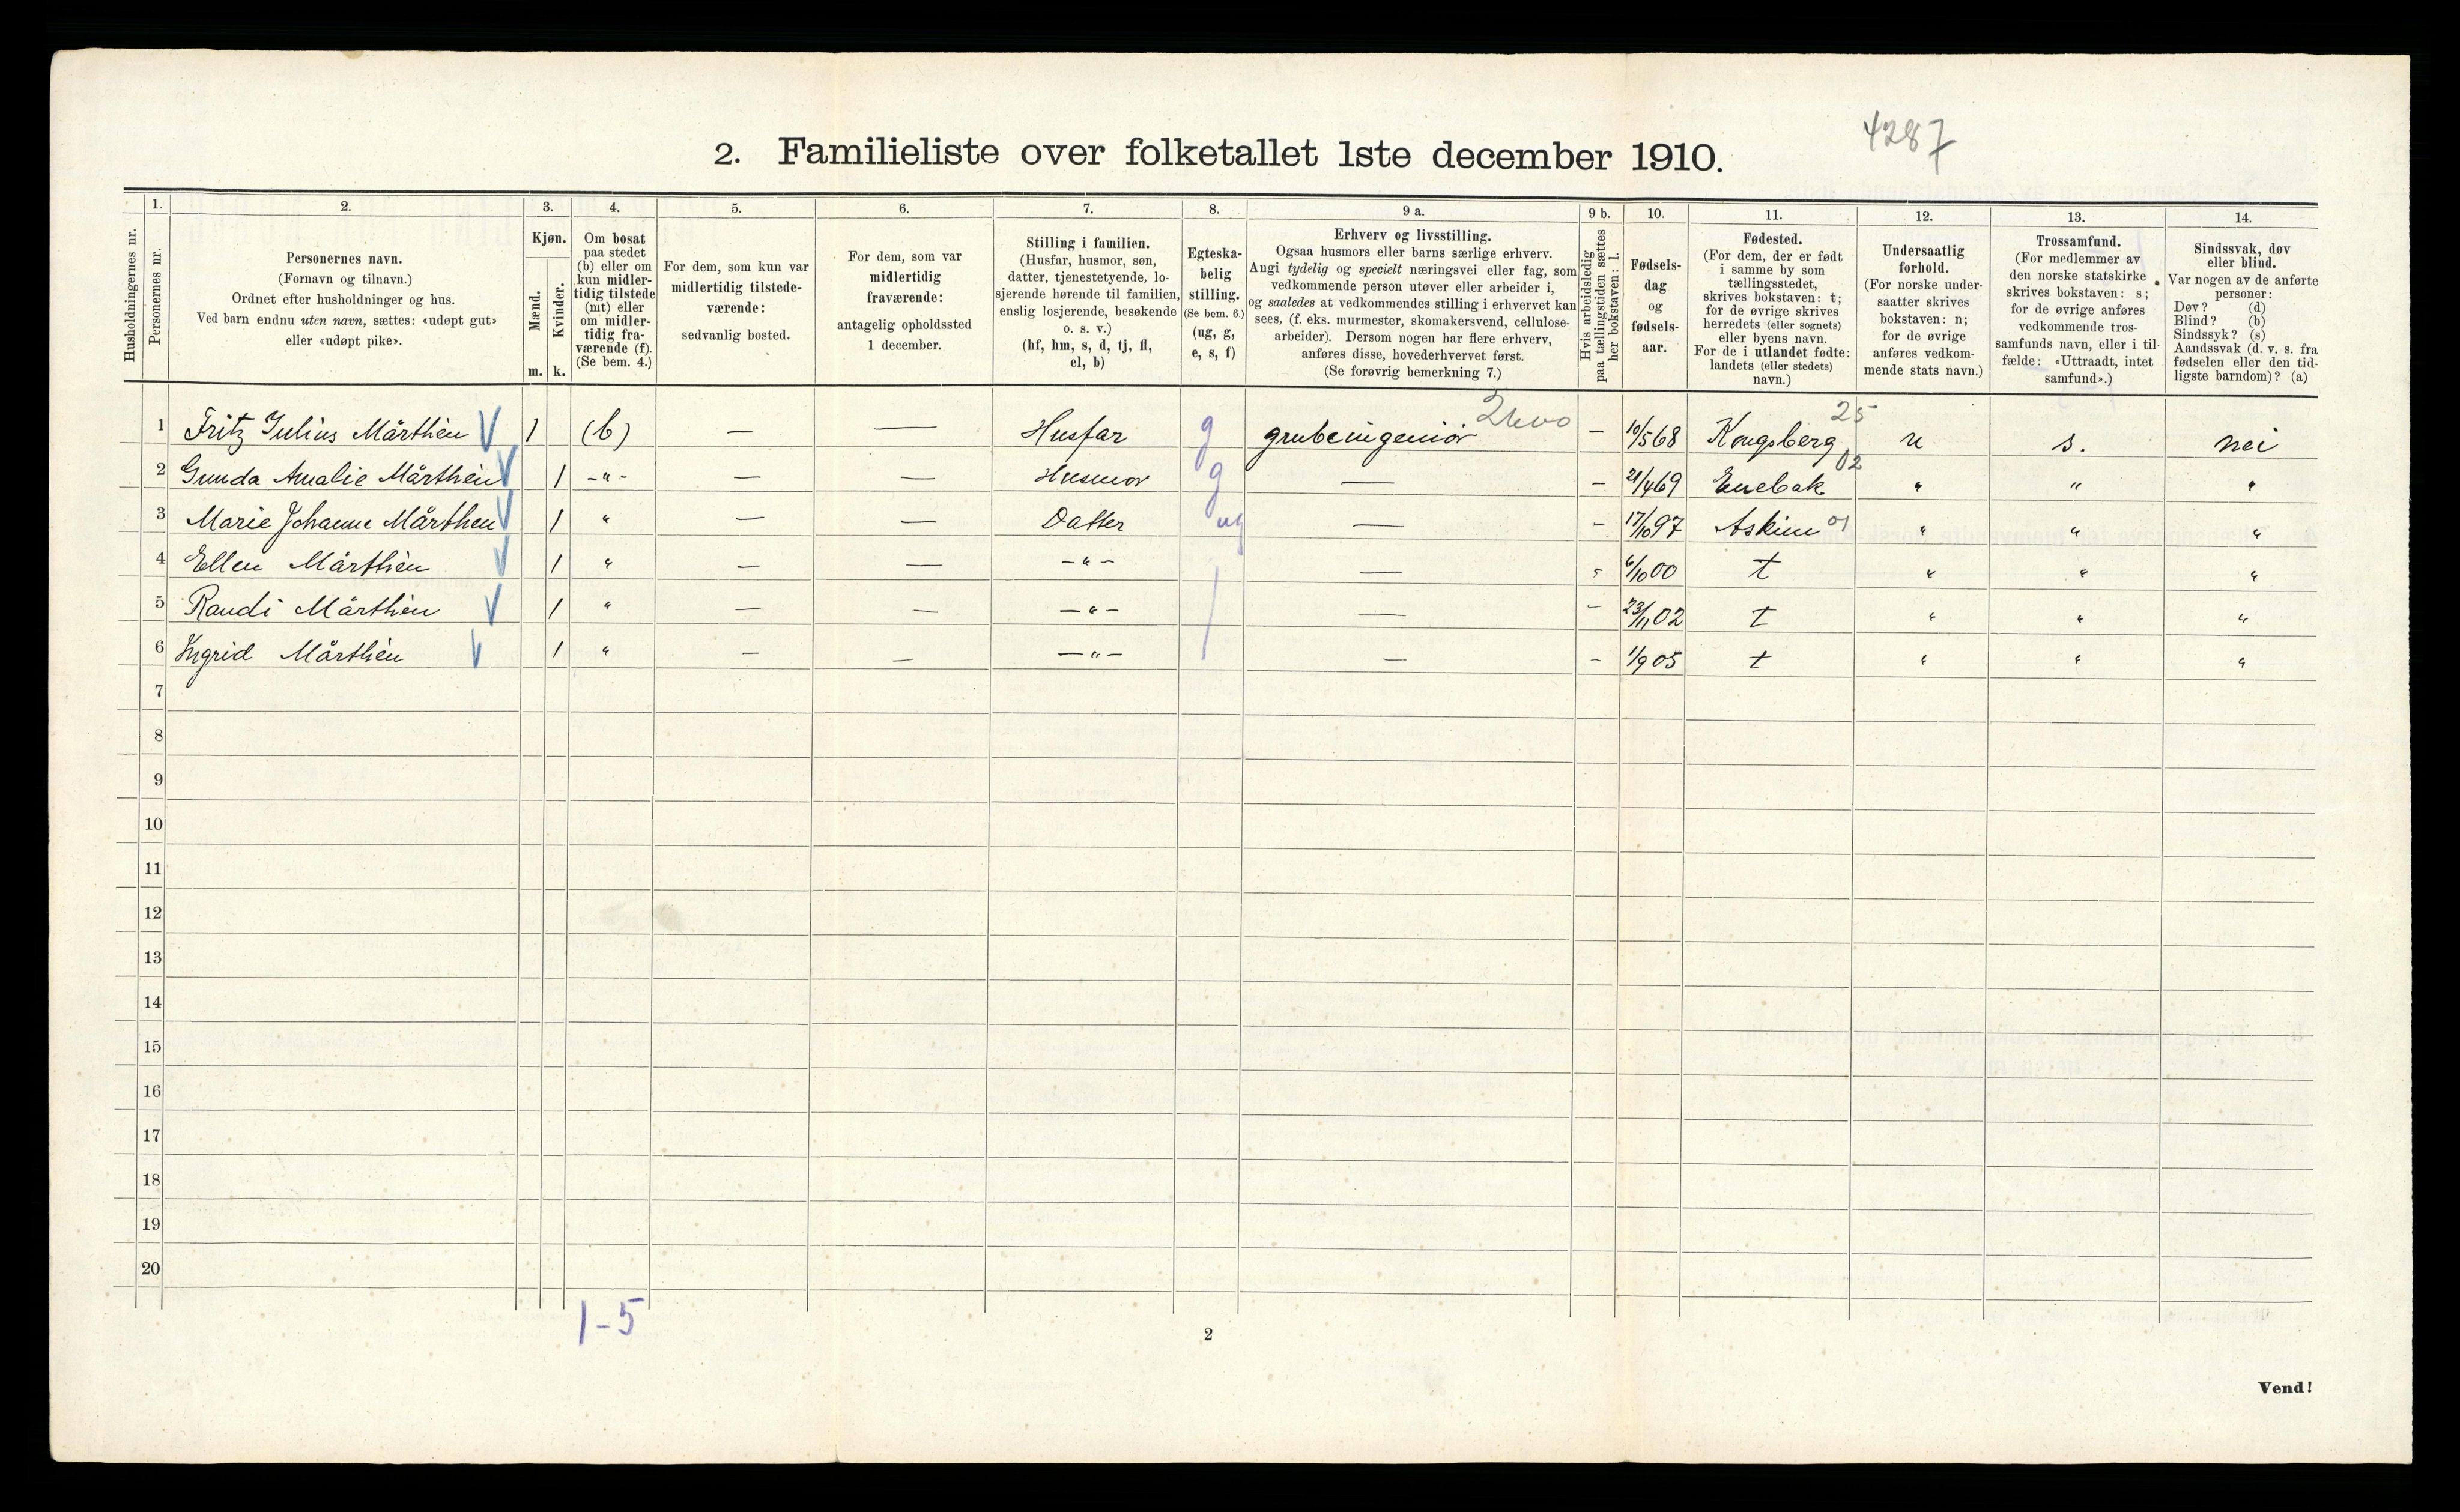 4287
2. Familieliste over folketallet 1ste december 1910.
1. 2. 3. 4. 5. 6. 7. 8. 9 a. 9 b. 10. 11. 12. 13. 14.
Husholdningernes nr.
Personernes nr.
Personernes navn.
(Fornavn og tilnavn.)
Ordnet efter husholdninger og hus.
Ved barn endnu uten navn, sættes: «udøpt gut»
eller «udøpt pike».
Kjøn.
Mænd.
Kvinder.
m. k.
Om bosat
paa stedet
(b) eller om
kun midler-
tidig tilstede
(mt) eller
om midler-
tidig fra-
værende (f).
(Se bem. 4.)
For dem, som kun var
midlertidig tilstede-
værende:
sedvanlig bosted.
For dem, som var
midlertidig
fraværende:
antagelig opholdssted
1 december.
Stilling i familien.
(Husfar, husmor, søn,
datter, tjenestetyende, lo-
sjerende hørende til familien,
enslig losjerende, besøkende
o. s. v.)
(hf, hm, s, d, tj, fl,
el, b)
Egteska-
belig
stilling.
(Se bem. 6.)
(ug, g,
e, s, f)
Erhverv og livsstilling.
Ogsaa husmors eller barns særlige erhverv.
Angi tydelig og specielt næringsvei eller fag, som
vedkommende person utøver eller arbeider i,
og saaledes at vedkommendes stilling i erhvervet kan
sees, (f. eks. murmester, skomakersvend, cellulose-
arbeider). Dersom nogen har flere erhverv,
anføres disse, hovederhvervet først.
(Se forøvrig bemerkning 7.)
Hvis arbeidsledig
paa tællingstiden sættes
her bokstaven: l.
Fødsels-
dag
og
fødsels-
aar.
Fødested.
(For dem, der er født
i samme by som
tællingsstedet,
skrives bokstaven: t;
for de øvrige skrives
herredets (eller sognets)
eller byens navn.
For de i utlandet fødte:
landets (eller stedets)
navn.)
Undersaatlig
forhold.
(For norske under-
saatter skrives
bokstaven: n;
for de øvrige
anføres vedkom-
mende stats navn.)
Trossamfund.
(For medlemmer av
den norske statskirke
skrives bokstaven: s;
for de øvrige anføres
vedkommende tros-
samfunds navn, eller i til-
fælde: «Uttraadt, intet
samfund».)
Sindssvak, døv
eller blind.
Var nogen av de anførte
personer:
Døv? (d)
Blind? (b)
Sindssyk? (s)
Aandssvak (d. v. s. fra
fødselen eller den tid-
ligste barndom)? (a)
1 Fritz Julius Mårthien V 1 (b) — — Husfar g grubeingeniør — 10/5 68 Kongsberg 25 n s. nei
2 Gunda Amalie Mårthien V 1 -"- — — Husmor g — — 21/4 69 Enebak 02 " " "
3 Marie Johanne Mårthen V 1 " — — Datter ug — - 17/10 97 Askim 01 " " "
4 Ellen Mårthien V 1 " — — -"- — - 6/10 00 t " " "
5 Randi Mårthien V 1 " — — -"- — - 23/11 02 t " " "
6 Ingrid Mårthien V 1 " — — -"- — - 1/9 05 t " " "
7
8
9
10
11
12
13
14
15
16
17
18
19
20
1-5
2
Vend!